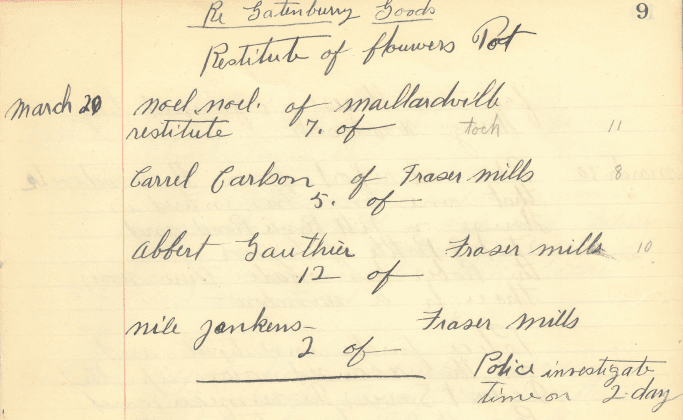 9
Re Gatenburry Goods
Restitute of flowers Pot
march 20 noel noel. of maillardville
restitute 7. of toch 11
Carrel Carlson of Fraser mills 8
5. of
Abbert Gauthier Fraser mills 10
12 of
nile Jenkens- Fraser mills
2 of
Police investigate
time on 2 day